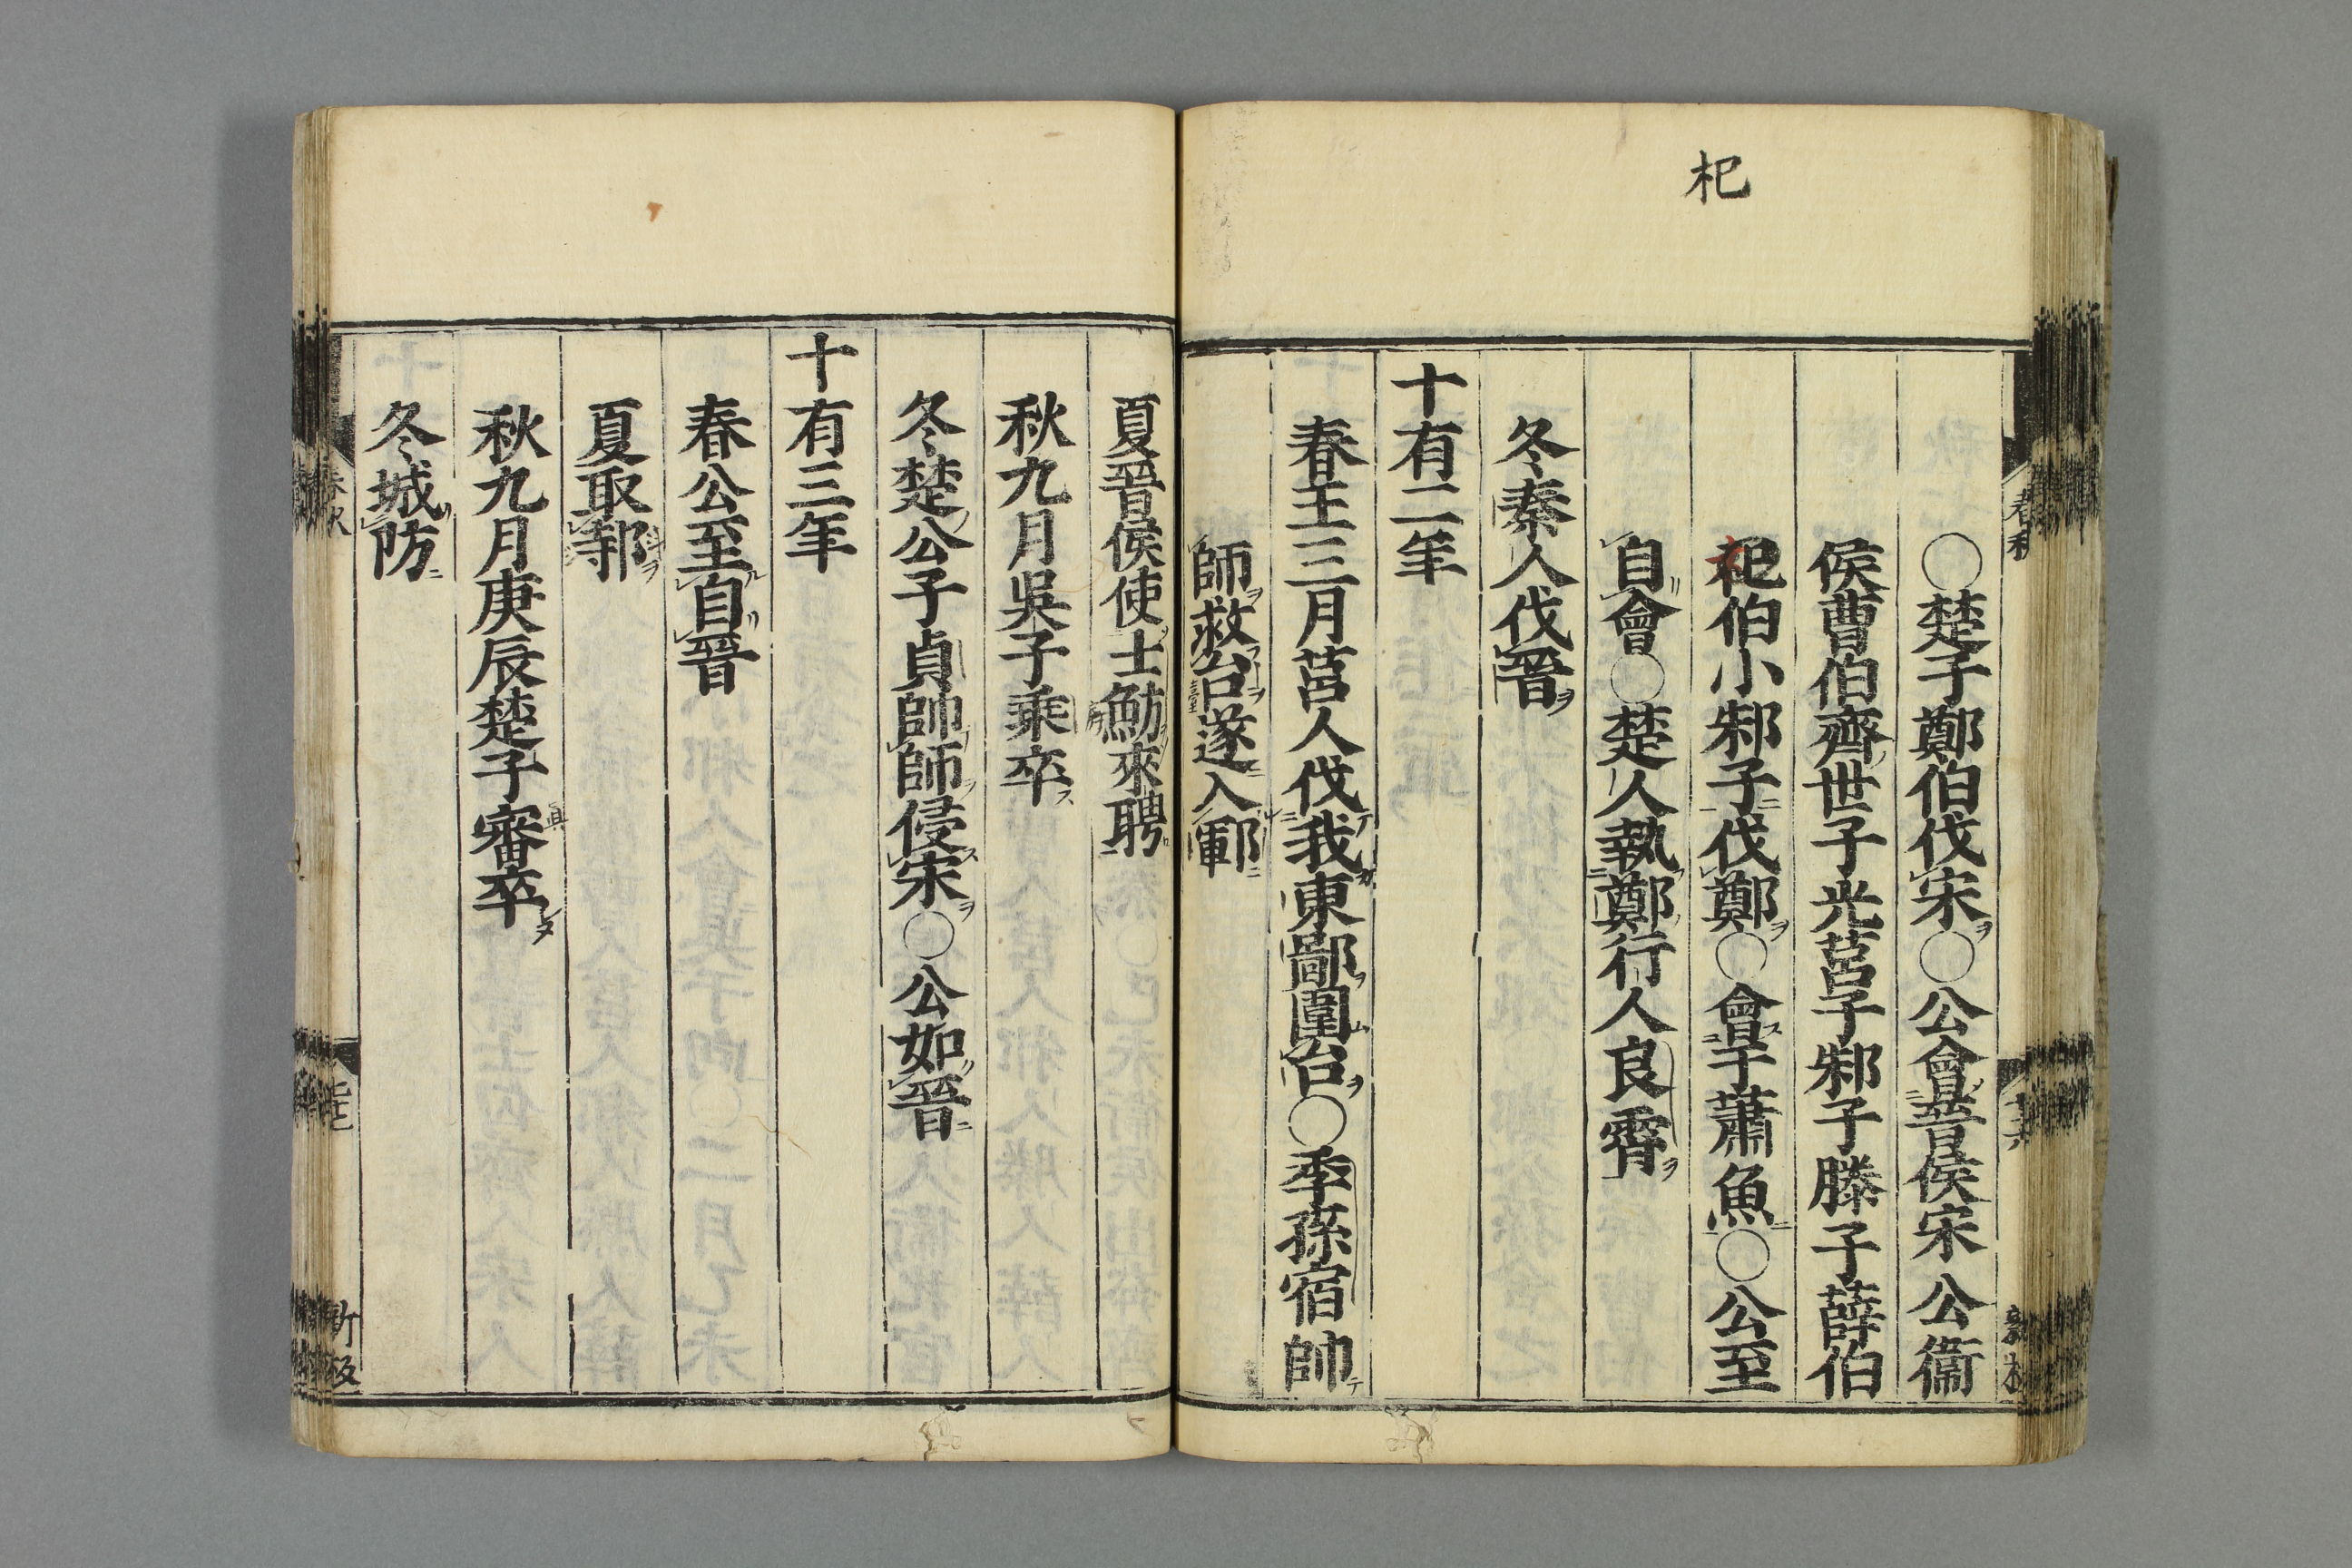 杞
○楚子鄭伯伐宋○公會晉侯宋公衞
侯曹伯齊世子光莒子邾子滕子薛伯
杞伯小邾子伐鄭○會于蕭魚○公至
自會○楚人執鄭行人良霄
冬秦人伐晉
十有二年
春王三月莒人伐我東鄙圍台○季孫宿帥
師救台遂入鄆
夏晉侯使士魴來聘
秋九月吳子乘卒
冬楚公子貞帥師侵宋○公如晉
十有三年
春公至自晉
夏取邿
秋九月庚辰楚子審卒
冬城防